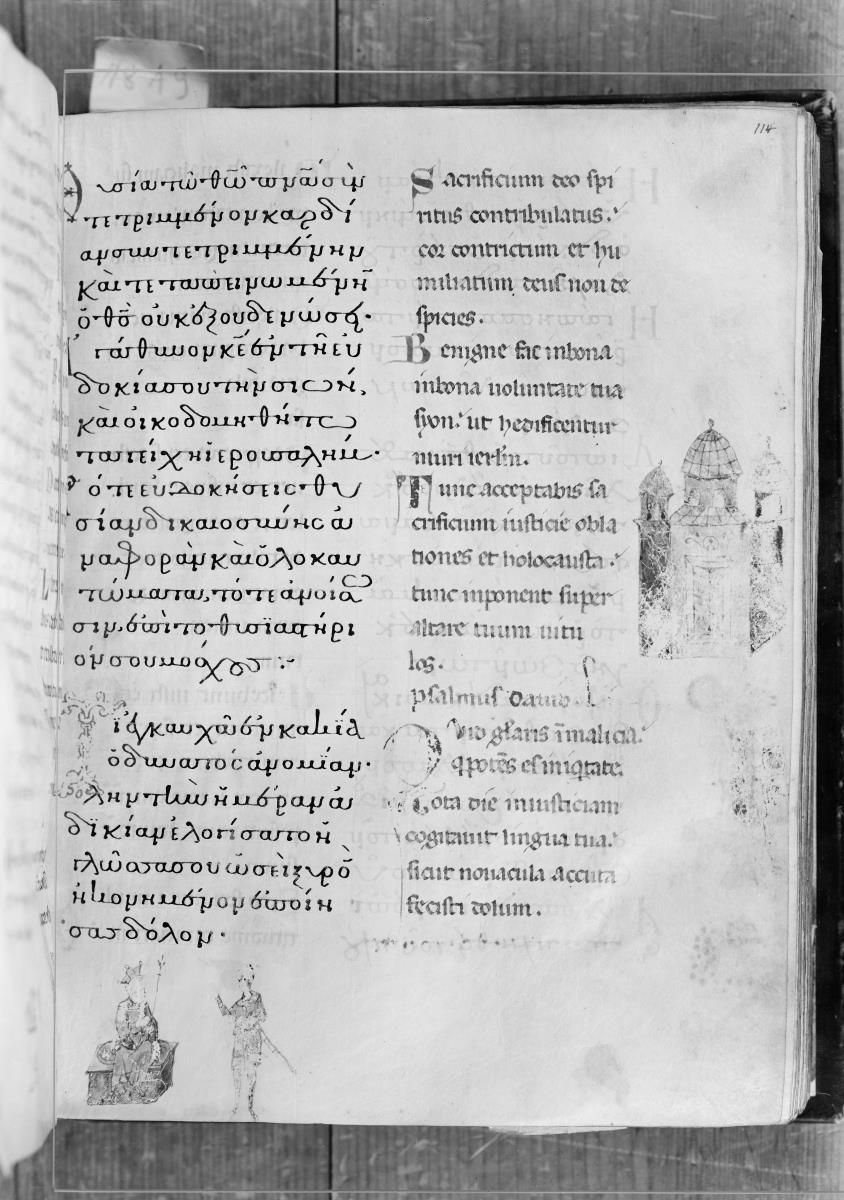 114
Θυσία τῶ θω πνα συν
τετριμμένον καρδί
αν συντετριμμένην
καὶ τεταπεινωμένην
ὁ θς οὐκ ἐξουδενώσει·
ἀγάθυνον κε ἐν τῆ εὐ
δοκία σου τὴν σιὼν,
καὶ οἰκοδομηθήτω
τὰ τείχη ϊερουσαλήμ·
τότε εὐδοκήσεις θυ
σίαν δικαιοσύνης ἀ
ναφορὰν καὶ ὁλοκαυ
τώματα, τότε ἀνοίσου
σιν ἐπὶ τὸ θυσϊαστήρι
όν σου μόσχους·
Τί ἐγκαυχᾶ ἐν κακία
ὁ δυνατὸς ἀνομίαν·
ὅλην τὴν ἡμέραν ἀ
δϊκίαν ἐλογίσατο ἡ
γλῶσσα σου ὡσεὶ ξυρὸ
ἠκονημένον ἐποίη
σας δόλον·
Sacrificium deo spi
ritus contribulatus.
cor contrictum et hu
miliatum deus non de
spicies.
Benigne fac inbona
inbona uoluntate tua
syon. ut hedificentur
muri ierlm.
Tunc acceptabis sa
crificium iusticie obla
tiones et holocausta.
tunc inponent super
altare tuum uitu
los.
psalmus Dauid.
Quid gliaris i malicia.
q potes es iniqtate.
Tota die iniusticiam
cogitauit lingua tua.
sicut nouacula accuta
fecisti dolum.